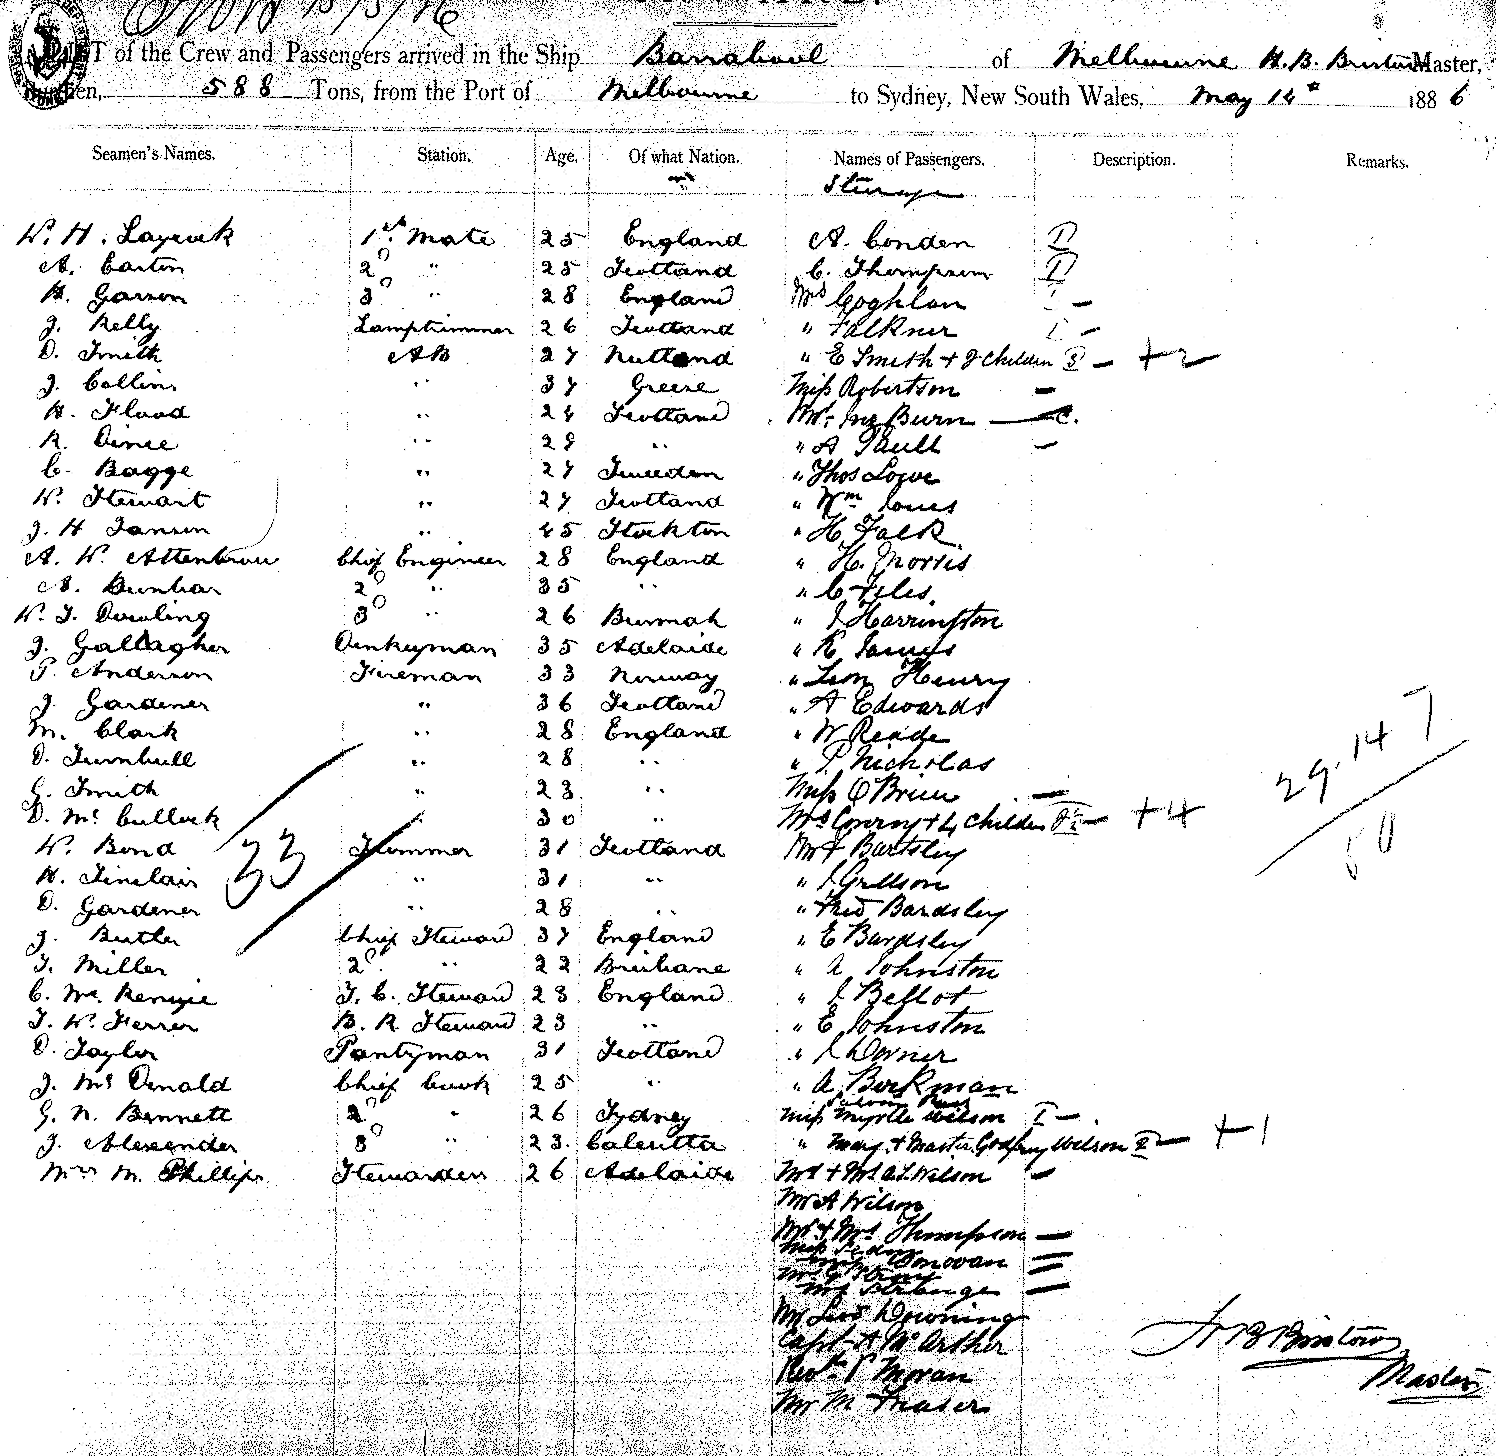 LIST of the Crew and Passengers arrived in the Ship Barrabool of Melbourne H. B. Bristow Master,
Burthen, 588 Tons, from the Port of Melbourne to Sydney, New South Wales, May 14th 1886
Seamen's Names. Station. Age. Of what Nation. Names of Passengers. Description. Remarks.
Steerage
W. H. Laycock 1st Mate 25 England A. Conden
A. Easton 2d " 25 Scotland C. Thompson
H. Garson 3d " 28 England Mrs Coghlan
J. Kelly Lamptrimmer 26 Scotland " Falkner
D. Smith AB 27 " E Smith + 2 Children +2
J. Collins " 37 Greece Miss Robertson
H. Flood " 24 Scotland Mr Burn
R. " 29 " " A
C. Bagge " 27 Sweeden " Thos Lowe
W. Stewart " 27 Scotland " Wm Jones
J. H Janson " 45 Stockton " H Falk
A. W. Attenbrow Chief Engineer 28 England " H. Morris
A. Dunbar 2d " 35 " " C Files
W. J. Dowling 3d " 26 Burmah " J Harrington
J. Gallagher Donkeyman 35 Adelaide " R James
P. Anderson Fireman 33 Norway " Leon Henry
J. Gardener " 36 Scotland " A Edwards
M. Clark " 28 England " W Reade
D. Turnbull " 28 " " P Nicholas
G. Smith " 23 " Miss O'Brien
D. McCullock " 30 " Mrs Conroy + 4 Children +4
W. Bond Trimmer 31 Scotland Mr J Bartsley
H. Sinclair " 31 " "
D. Gardener " 28 " " Fred Bardsley
J. Butler Chief Steward 37 England " E Bardsley
T. Miller 2d " 22 Brisbane " A Johnston
C. McKenzie F. C. Steward 23 England " J Bellot
T. W. Ferrer B. R. Steward 23 " " E Johnston
D. Taylor Pantryman 31 Scotland " J Dorner
J. McDonald Chief Cook 25 " " A Borkman
Saloon Pass
G. N. Bennett 2d " 26 Sydney Miss Myrtle Wilson
J. Alexander 3d " 23 Calcutta " May + Master Godfrey Wilson +1
Mrs M. Phillips Stewardess 26 Adelaide Mr + Mrs A. L. Wilson
Mr A Wilson
Mr + Mrs Thompson
Donovan
Mrs Strange
Mr Downing
Capt A McArther
Revd P Moran
Mr M Fraser
33
29.14 7
50
H B Bristow
Master